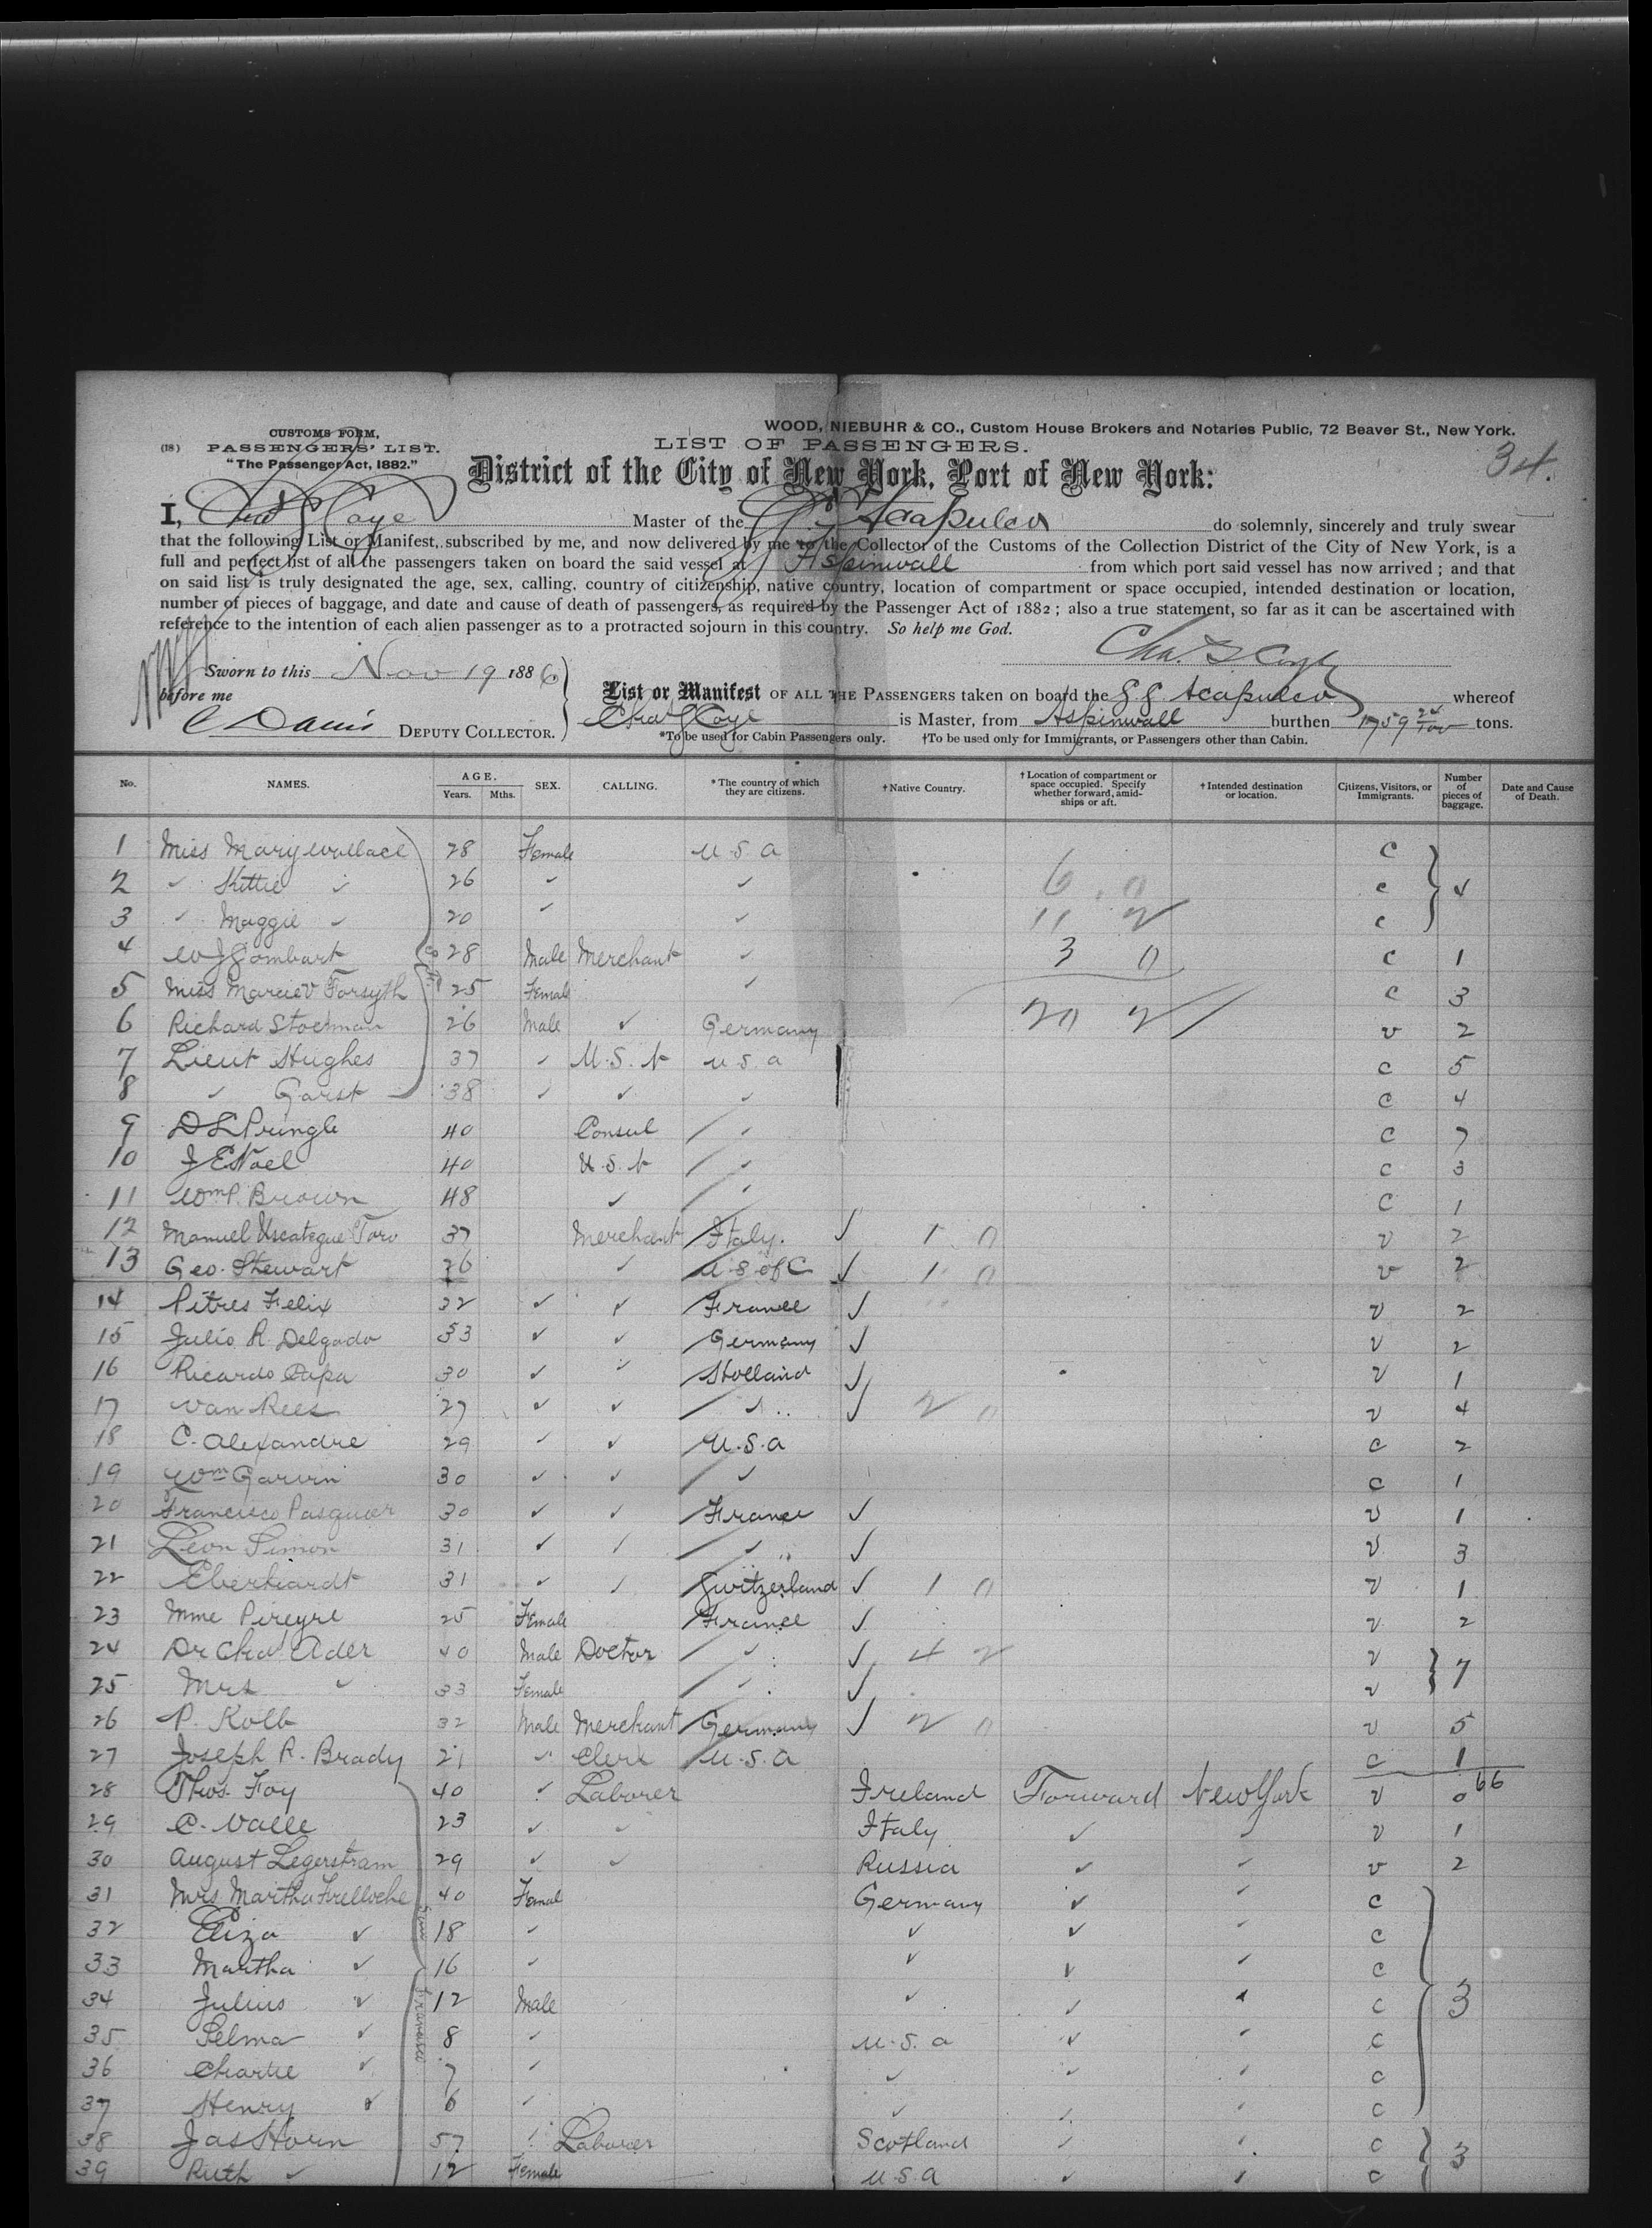 CUSTOMS FORM,
(18) PASSENGERS' LIST.
"The Passenger Act, 1882."
WOOD, NIEBUHR & CO., Custom House Brokers and Notaries Public, 72 Beaver St., New York.
LIST OF PASSENGERS.
34.
District of the City of New York, Port of New York:
I, Master of the Acapulco do solemnly, sincerely and truly swear
that the following List or Manifest, subscribed by me, and now delivered by me to the Collector of the Customs of the Collection District of the City of New York, is a
full and perfect list of all the passengers taken on board the said vessel at Aspinwall from which port said vessel has now arrived; and that
on said list is truly designated the age, sex, calling, country of citizenship, native country, location of compartment or space occupied, intended destination or location,
number of pieces of baggage, and date and cause of death of passengers, as required by the Passenger Act of 1882; also a true statement, so far as it can be ascertained with
reference to the intention of each alien passenger as to a protracted sojourn in this country. So help me God.
Sworn to this Nov 19 1886
before me
C Davis DEPUTY COLLECTOR.
List or Manifest OF ALL THE PASSENGERS taken on board the S.S. Acapulco whereof
is Master, from Aspinwall burthen 1759 24/100 tons.
*To be used for Cabin Passengers only. †To be used only for Immigrants, or Passengers other than Cabin.
No. NAMES. AGE. Years. Mths. SEX. CALLING. *The country of which they are citizens. †Native Country. †Location of compartment or space occupied. Specify whether forward, amidships or aft. †Intended destination or location. Citizens, Visitors, or Immigrants. Number of pieces of baggage. Date and Cause of Death.
1 Miss Mary Wallace 28 Female U.S.A C
2 " Kittie " 26 " " C 4
3 " Maggie " 20 " " C
4 W J Gombart 28 Male Merchant " C 1
5 Miss Forsyth 25 Female " C 3
6 Richard Stoeman 26 Male " Germany V 2
7 Lieut Hughes 37 " U.S.N U.S.A C 5
8 " Garst 38 " " " C 4
9 D L Pringle 40 Consul " C 7
10 J E Noel 40 U.S.N " C 3
11 Wm P. Brown 48 " " C 1
12 Manuel Uscategue Toro 37 Merchant Italy. 1 0 V 2
13 Geo. Stewart 26 " U.S. of C 1 0 V 2
14 Pitres Felix 32 " " France V 2
15 Julio R. Delgado 33 " " Germany V 2
16 Ricardo 30 " " Holland V 1
17 Van Rees 27 " " " 2 0 V 4
18 C. Alexandre 29 " " U.S.A C 2
19 Wm Garvin 30 " " " C 1
20 Francisco Pasquier 30 " " France V 1
21 Leon Simon 31 " " " V 3
22 Eberhardt 31 " " Switzerland 1 0 V 1
23 Mme Pireyre 25 Female France V 2
24 Dr Chas Ader 40 Male Doctor " 4 2 V 7
25 Mrs " 33 Female " V
26 P. Kolb 32 Male Merchant Germany 2 0 V 5
27 Joseph R. Brady 21 " Clerk U.S.A C 1
66
28 Thos. Foy 40 " Laborer Ireland Forward New York V 0
29 C. Valle 23 " " Italy " " V 1
30 August Legerstram 29 " " Russia " " V 2
31 Mrs Martha 40 Femal Germany " " C
32 Eliza " 18 " " " " C
33 Martha " 16 " " " " C
34 Julius " 12 Male " " " C 3
35 Selma " 8 " U.S.A " " C
36 Charlie " 7 " " " " C
37 Henry " 6 " " " " C
38 Jas Horn 57 " Laborer Scotland " " C 3
39 Ruth " 12 Female U.S.A " " C